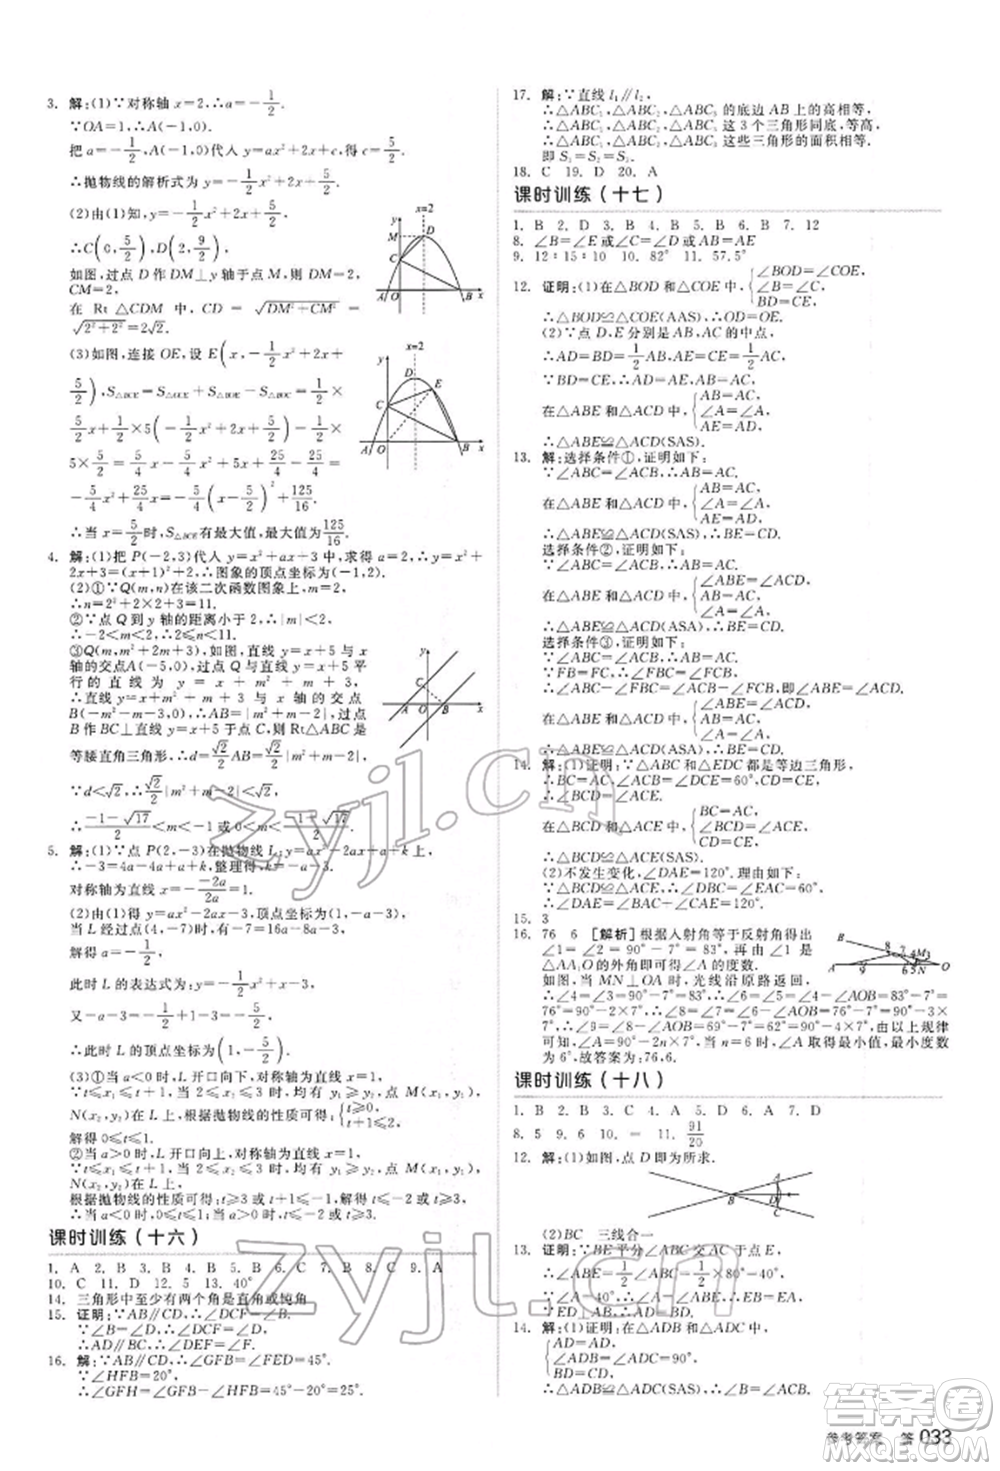 3. 解:(1)∵对称轴 x=2,∴a=-1/2.
∵OA=1,∴A(-1,0).
把 a=-1/2,A(-1,0)代入 y=ax²+2x+c,求得 c=5/2.
∴抛物线的解析式为 y=-1/2x²+2x+5/2.
(2)由(1)知,y=-1/2x²+2x+5/2,
∴C(0,5/2),D(2,9/2).
如图,过点 D 作 DM⊥y 轴于点 M,则 DM=
CM=2,
在 Rt △CDM 中, CD=√(DM²+CM²)=
√(2²+2²)=2√2.
(3)如图,连接 OE,设 E(x,-1/2x²+2x+
5/2),
5/2 x+1/2×5(-1/2x²+2x+5/2)-1/2×
5×5/2=5/4x-5/4x²+5x+25/4-25/4=
-5/4x²+25/4x=-5/4(x-5/2)²+125/16.
∴当 x=5/2时,S△BCE有最大值,最大值为125/16.
4. 解:(1)把 P(-2,3)代入 y=x²+ax+3 中,求得 a=2,∴y=x²+
2x+3=(x+1)²+2,∴图象的顶点坐标为(-1,2).
(2)①∵Q(m,n)在该二次函数图象上,m=2,
∴n=2²+2×2+3=11.
②∵点 Q 到 y 轴的距离小于 2,∴|m|<2,
∴-2<m<2,∴2≤n<11.
③Q(m,m²+2m+3),如图,直线 y=x+5 与 x
轴的交点A(-5,0),过点 Q 与直线 y=x+5 平
行的直线为 y = x + m² + m + 3,
∴直线 y=x+m²+m+3 与 x 轴的交点
B(-m²-m-3,0),∴AB=|m²+m-2|,过点
B 作 BC⊥直线 y=x+5 于点 C,则 Rt△ABC 是
等腰直角三角形,∴d=√2/2AB=√2/2|m²+m-2|,
∵d<√2,∴√2/2|m²+m-2|<√2,
∴(-1-√17)/2<m<-1 或 0<m<(-1+√17)/2.
5. 解:(1)∵点 P(2,-3)在抛物线 L:y=ax²-2ax+a+k 上,
∴-3=4a-4a+a+k,整理得 k=-a-3.
对称轴为直线 x=-(-2a)/2a=1.
(2)由(1)得 y=ax²-2ax-3,顶点坐标为(1,-a-3).
当 L 经过点(4,-7)时,得 16a-8a-3=-7,
解得 a=-1/2.
此时 L 的表达式为 y=-1/2x²+x-3.
又-a-3=-(-1/2)-3=-5/2,
∴此时 L 的顶点坐标为(1,-5/2).
(3)①当 a<0 时,L 开口向下,对称轴为直线 x=1.
∵t≤x₁≤t+1,x₂≥t+2 时,均具有 y₁≥y₂,点 M(x₁,y₁),
N(x₂,y₂)在 L 上,根据抛物线的性质可得{t≥0, t≤1,
解得 0≤t≤1.
②当 a>0 时,L 开口向上,对称轴为直线 x=1.
根据抛物线的性质可得 t≥3 或 t+1≤-1,∴t≥3 或 t≤-2.
∴当 a<0 时,0≤t≤1;当 a>0 时,t≥3 或 t≤-2.
课时训练(十六)
1. A 2. B 3. D 4. B 5. C 6. C 7. B 8. C 9. A
10. C 11. D 12. 5 13. 40°
14. 三角形中至少有两个角是直角或钝角
15. 证明:∵AB∥CD,∴∠DCF=∠B.
∵∠B=∠D,∴∠DCF=∠D,
∴AD∥BC,∴∠DEF=∠F.
16. 解:∵AB∥CD,∴∠GFB=∠FED=45°.
∵∠HFB=20°,
∴∠GFH=∠GFB-∠HFB=45°-20°=25°.
17. 解:∵直线 l₁∥l₂,
∴△ABC₁,△ABC₂,△ABC₃ 的底边 AB 上的高相等,
∴△ABC₁,△ABC₂,△ABC₃ 这 3 个三角形同底,等高,
∴△ABC₁,△ABC₂,△ABC₃ 这些三角形的面积相等.
即 S₁=S₂=S₃.
18. C 19. D 20. A
课时训练(十七)
1. B 2. D 3. B 4. B 5. B 6. B 7. 12
8. ∠B=∠E 或∠C=∠D 或 AB=AE
9. 12∶15∶10 10. 82° 11. 57.5°
12. 证明:(1)在△BOD 和△COE 中,{∠BOD=∠COE, ∠B=∠C, BD=CE,
∴△BOD≌△COE(AAS),∴OD=OE.
(2)∵点 D,E 分别是 AB,AC 的中点,
∴AD=BD=1/2AB,AE=CE=1/2AC.
∵BD=CE,∴AD=AE,AB=AC,
在△ABE 和△ACD 中,{AB=AC, ∠A=∠A, AE=AD,
∴△ABE≌△ACD(SAS).
13. 解:选择条件①,证明如下:
∵∠ABC=∠ACB,∴AB=AC.
在△ABE 和△ACD 中,{AB=AC, ∠A=∠A, AE=AD,
∴△ABE≌△ACD(SAS),∴BE=CD.
选择条件②,证明如下:
∵∠ABC=∠ACB,∴AB=AC.
在△ABE 和△ACD 中,{∠ABE=∠ACD, AB=AC, ∠A=∠A,
∴△ABE≌△ACD(ASA),∴BE=CD.
选择条件③,证明如下:
∵FB=FC,∴∠FBC=∠FCB.
∵∠ABC=∠ACB,∴∠ABE=∠ACD,AB=AC.
在△ABE 和△ACD 中,{∠ABE=∠ACD, AB=AC, ∠A=∠A,
∴△ABE≌△ACD(ASA),∴BE=CD.
14. 解:(1)证明:∵△ABC 和△EDC 都是等边三角形,
∴BC=AC,∠ACB=∠DCE=60°,CD=CE,
∴∠BCD=∠ACE.
在△BCD 和△ACE 中,{BC=AC, ∠BCD=∠ACE, CD=CE,
∴△BCD≌△ACE(SAS).
(2)不发生变化,∠EAD=120°.理由如下:
∵△BCD≌△ACE,∴∠DBC=∠EAC=60°.
∵∠BAC=60°,∴∠EAD=120°.
15. 3
16. 76 6 [解析]根据入射角等于反射角得出
∠1=∠2=90°-7°=83°,再由∠1 是
△AA₁O 的外角即可得∠A 的度数.
如图,当 MN⊥OA 时,光线沿原路返回,
∴∠4=∠3=90°-7°=83°,
∴∠6=∠5=∠4-∠AOB=83°-7°=
76°=90°-2×7°,
∴∠8=∠7=∠6-∠AOB=76°-7°=
69°=90°-3×7°,
∴∠9=∠8-∠AOB=69°-7°=62°=90°-4×7°,由以上规律
可知,∠A=90°-n·7°,当 n=6 时,∠A 取得最小值,最小度数
为 6°,故答案为:76,6.
课时训练(十八)
1. B 2. B 3. C 4. A 5. D 6. A 7. D
8. 5 9. 6 10. = 11. 91/20
12. 解:(1)如图,点 D 即为所求.
(2)BC 三线合一
13. 证明:∵BE平分∠ABC,∠ABC=80°,
∴∠EBC=1/2∠ABC=1/2×80°=40°,
∵∠A=40°,∴∠A=∠EBA,∴AE=BE,
∵ED⊥AB,∴AD=BD.
14. 解:(1)证明:在△ADB 和△ADC 中,
{AD=AD, ∠ADB=∠ADC=90°, BD=CD,
∴△ADB≌△ADC(SAS),∴∠B=∠ACB.
参考答案 答 033
zyjl.cn
zyjl.cn
答案圈
MXQE.COM